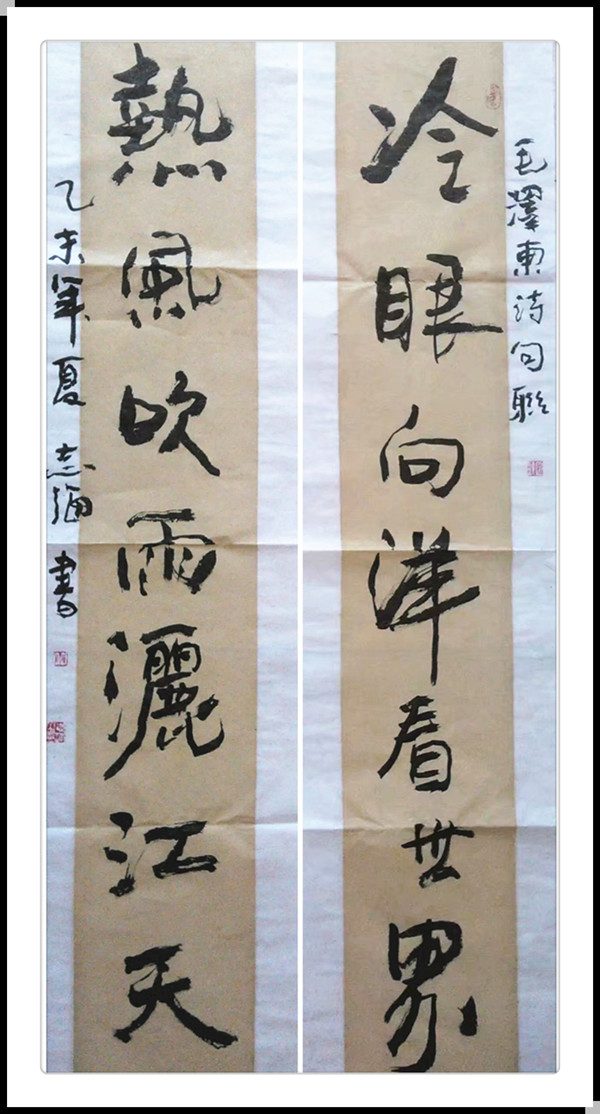 毛澤東詩句聯
冷眼向洋看世界
熱風吹雨灑江天
乙未年夏 志 書